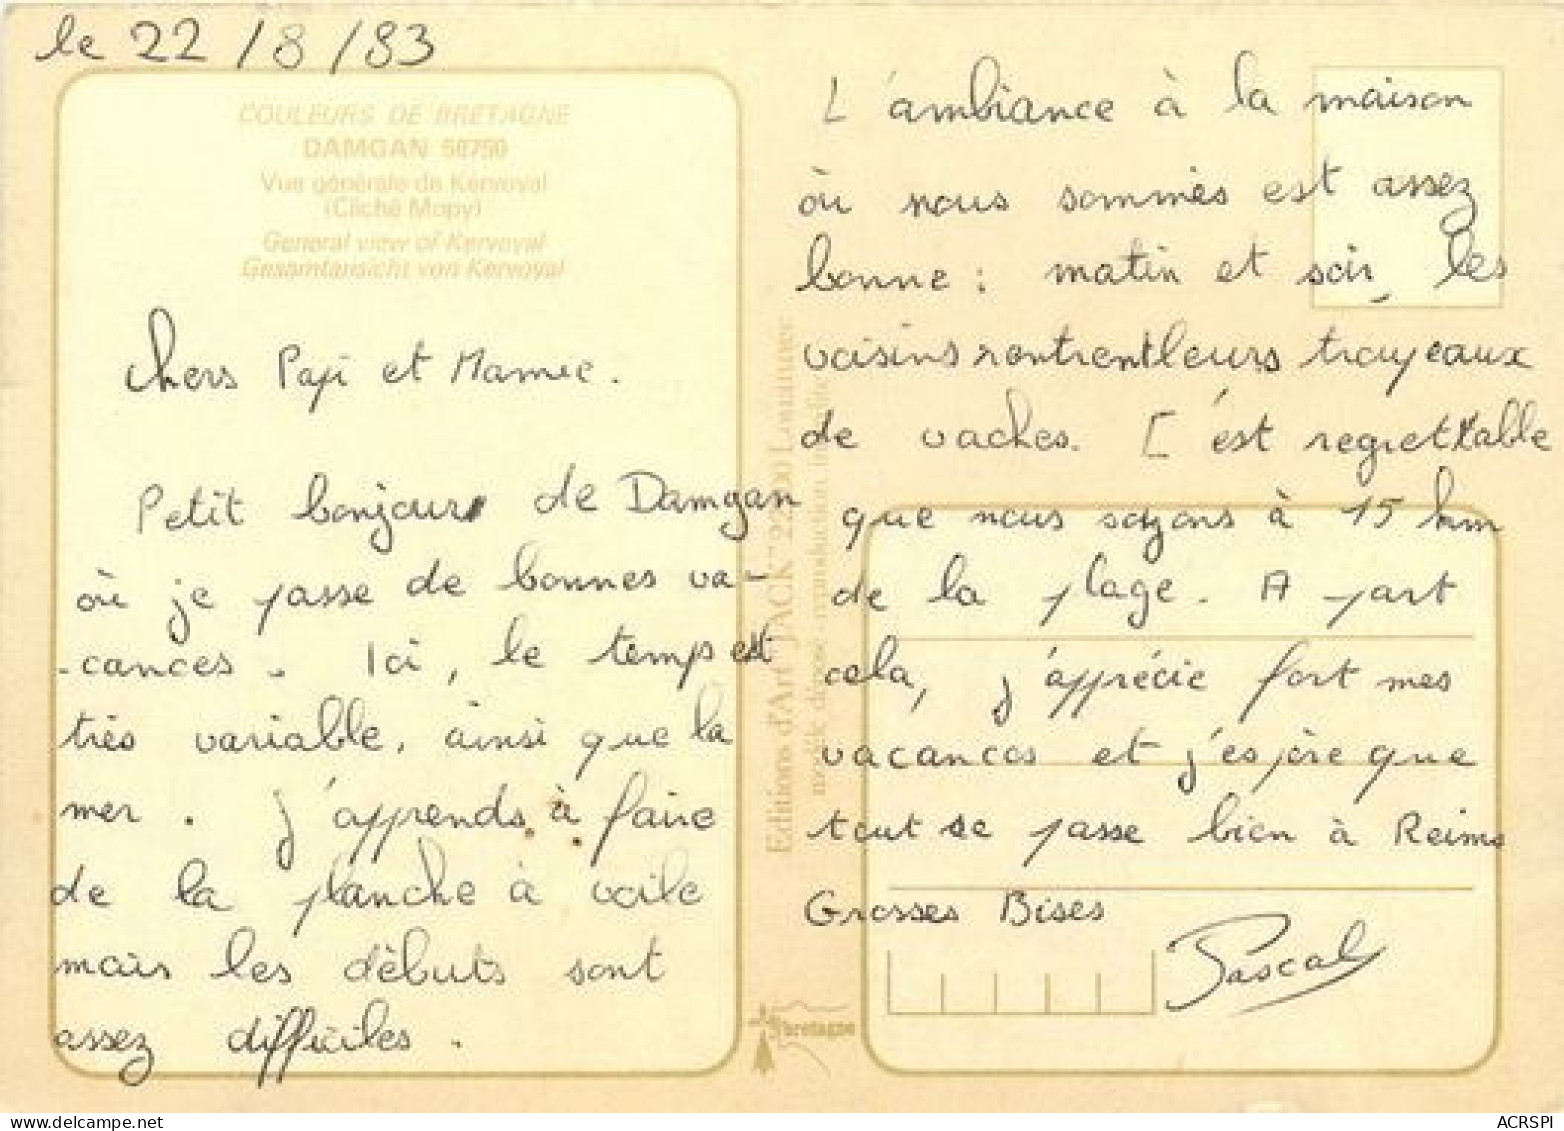 le 22/8/83
COULEURS DE BRETAGNE
DAMGAN 56750
Vue générale de Kervoyal
(Cliché Mopy)
General view of Kervoyal
Gesamtansicht von Kervoyal
Chers Papi et Mamie.
Petit bonjour de Damgan
où je passe de bonnes va-
-cances. Ici, le temps est
très variable, ainsi que la
mer. J'apprends à faire
de la planche à voile
mais les débuts sont
assez difficiles.
L'ambiance à la maison
où nous sommes est assez
bonne : matin et soir, les
voisins rentrent leurs troupeaux
de vaches. C'est regrettable
que nous soyons à 15 km
de la plage. A part
cela, j'apprécie fort mes
vacances et j'espère que
tout se passe bien à Reims
Grosses Bises
Pascal
Editions d'Art "JACK" 22 Louannec
modèle déposé reproduction interdite
bretagne
ACRSPI